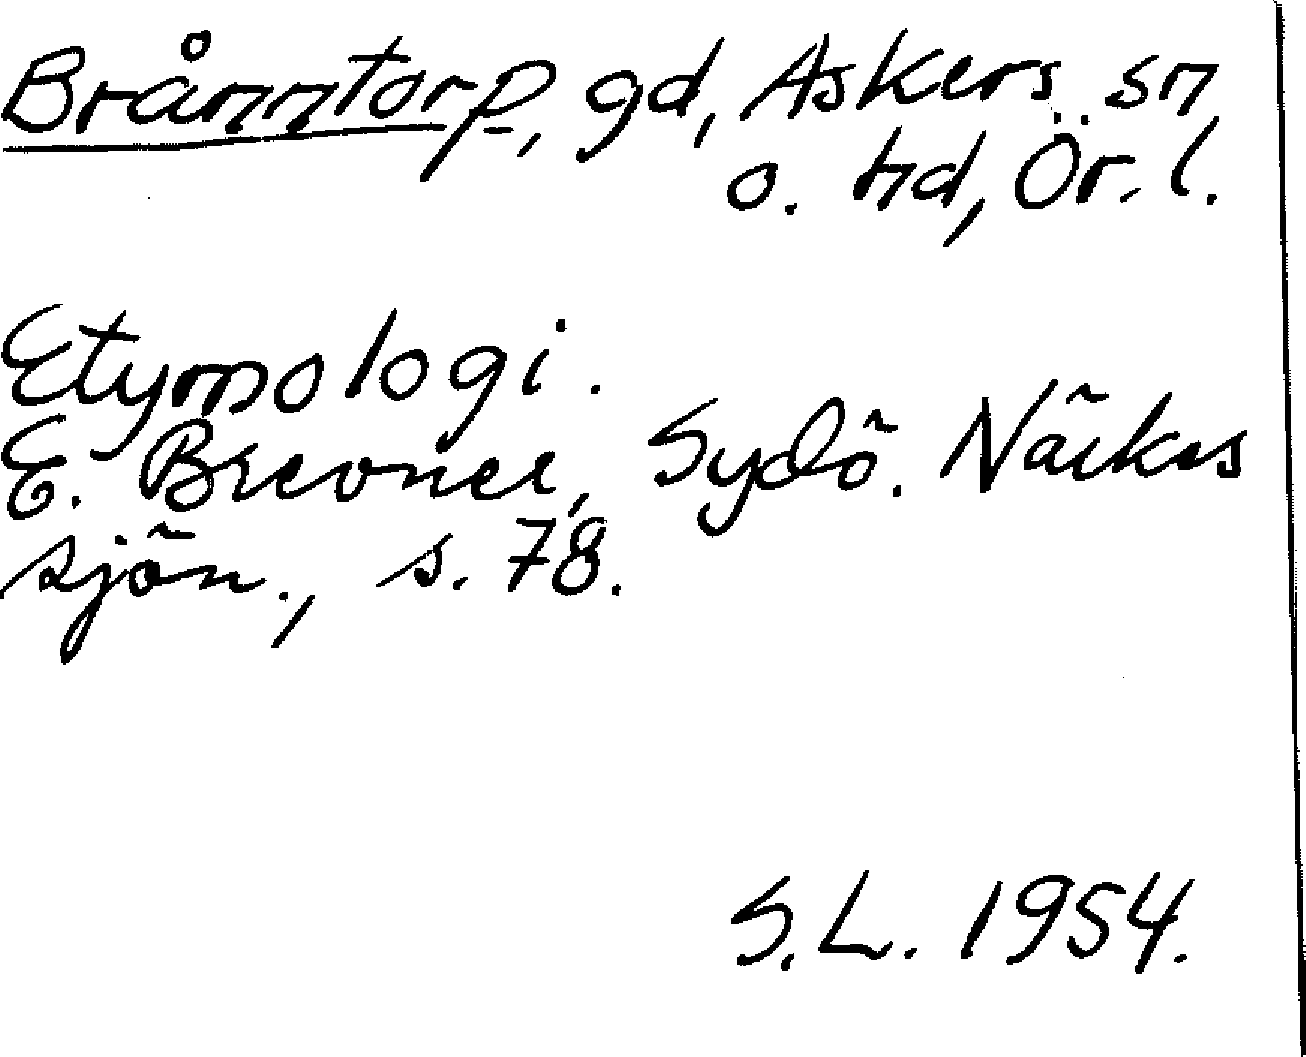 Brånntorp, gd, Askers sn
o. hd, Ör. l.
Etymologi.
E. Brevner, Sydö. Närkes
sjön., s. 78.
S.L. 1954.